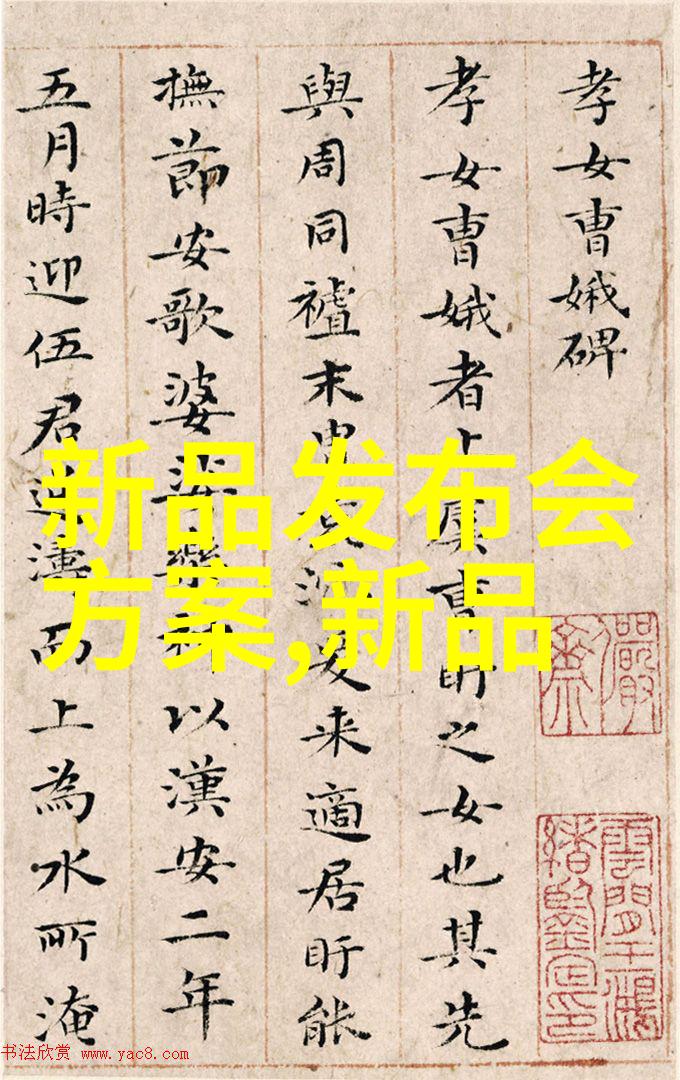 孝女曹娥碑
孝女曹娥者上虞曹盱之女也其先
與周同末胄沉爰来適居盱能
撫節安歌婆娑樂神以漢安二年
五月時迎伍君逆濤而上為水所淹
新品发布会
方案,新品
雲間王鴻
緒鑒定印
书法欣赏 www.yac8.com